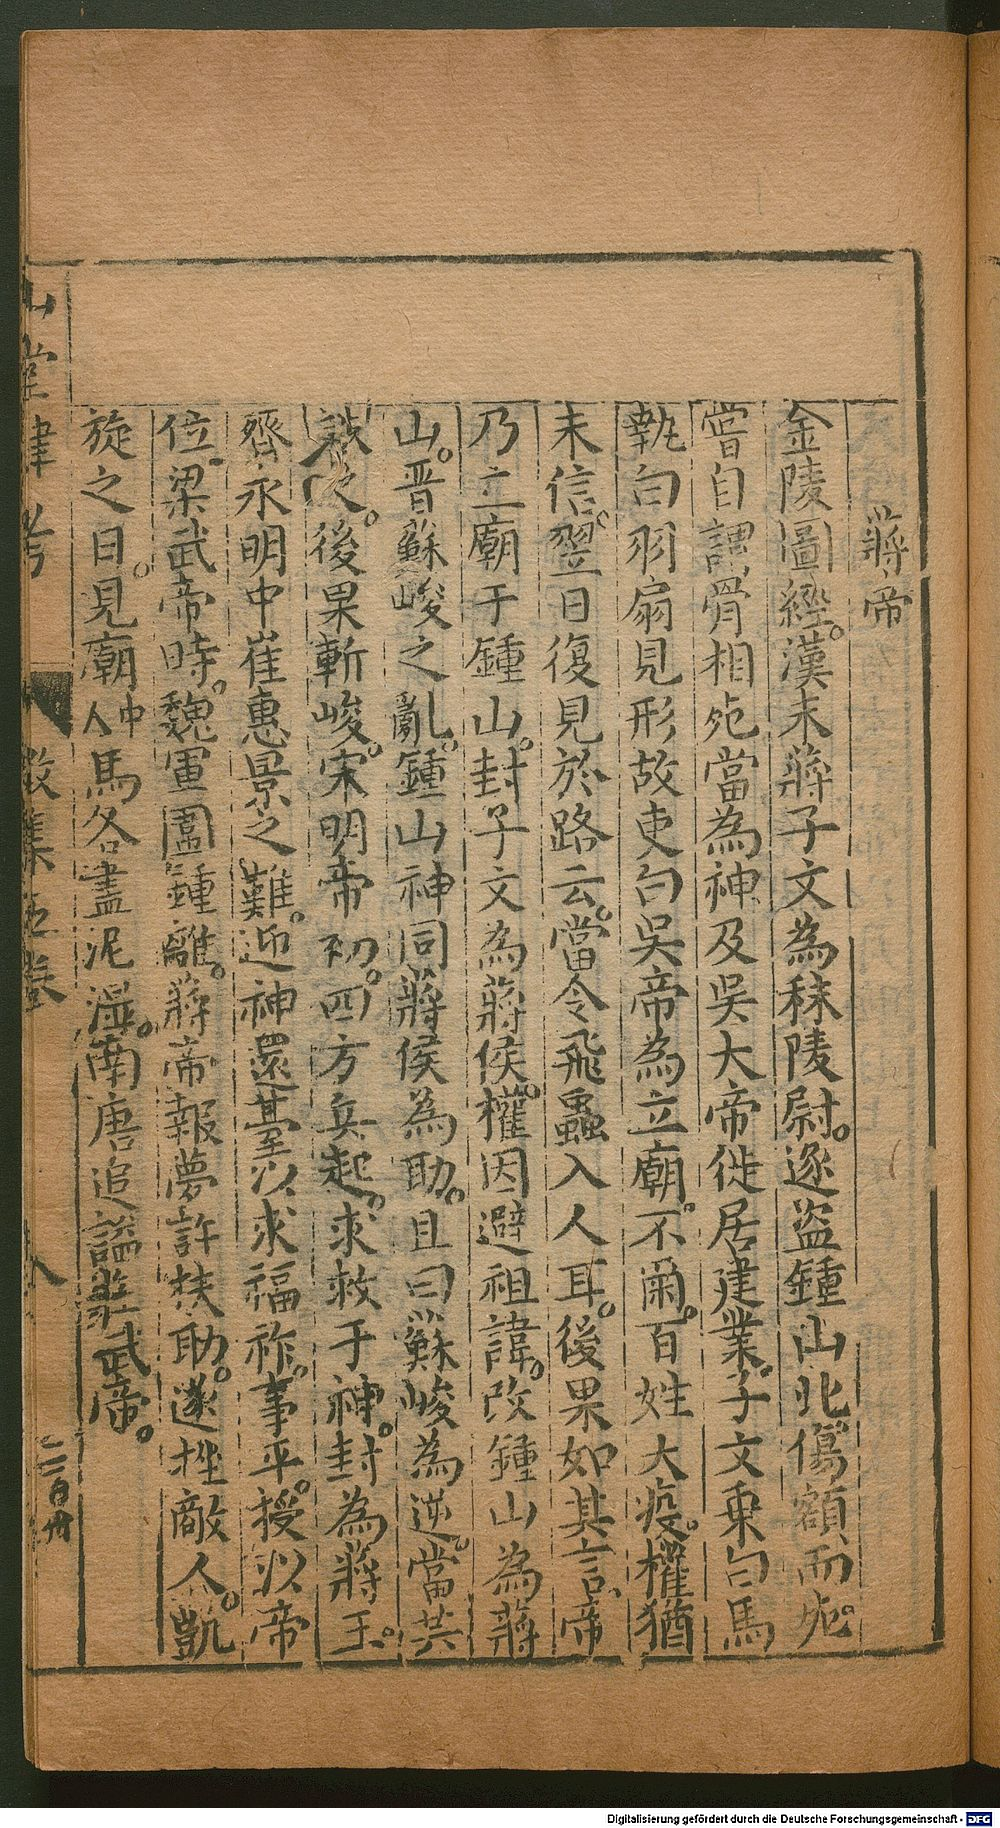 蔣帝
金陵圖經。漢末蔣子文為秣陵尉。逐盗鍾山北。傷額而死。
嘗自謂骨相死當為神及吳大帝徙居建業。子文乘白馬
執白羽扇見形故吏白吳帝為立廟。不爾。百姓大疫。權猶
未信。翌日復見於路云。當令飛蟲入人耳。後果如其言。帝
乃立廟于鍾山。封子文為蔣侯。權因避祖諱。改鍾山為蔣
山。晋蘇峻之亂。鍾山神同蔣侯為助。且曰蘇峻為逆。當共
後果斬峻。宋明帝初。四方兵起。求救于神。封為蔣王。
齊永明中崔惠景之難。迎神還臺以求福祚。事平。授以帝
位。梁武帝時。魏軍圍鍾離。蔣帝報夢許扶助。遂挫敵人。凱
旋之日。見廟中人馬各盡泥濕。南唐追謚莊武帝。
山堂肆考
徵集五卷
八
二百卅
Digitalisierung gefördert durch die Deutsche Forschungsgemeinschaft - DFG